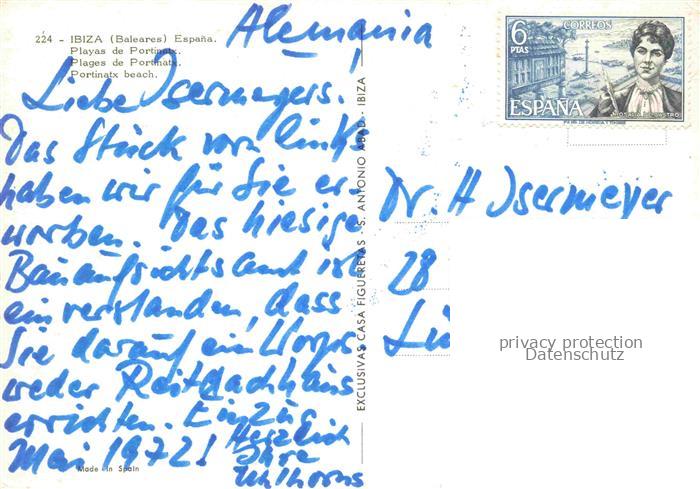 224 - IBIZA (Baleares) España.
Playas de Portinatx.
Plages de Portinatx.
Portinatx beach.
Alemania
CORREOS
6
PTAS
ESPAÑA
ROSALIA DE CASTRO
Liebe Isermeyers!
Das Stück vorn links
haben wir für Sie er-
worben. Das hiesige
Bauaufsichtsamt ist
einverstanden, dass
Sie darauf ein Worps
weder Reetdachhaus
errichten. Einzug
Mai 1972!
Herzlich
Ihre
Uhlhorns
Made in Spain
EXCLUSIVAS CASA FIGUERETAS - S. ANTONIO ABAD - IBIZA
Dr. H Isermeyer
28
Li
privacy protection
Datenschutz